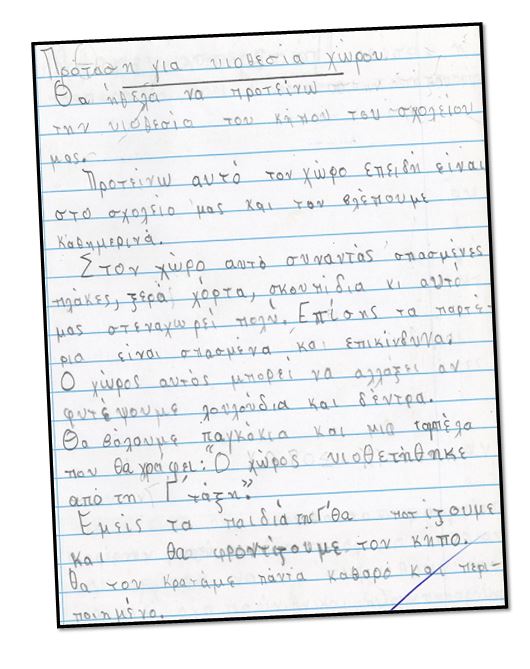 Πρόταση για υιοθεσία χώρου
Θα ήθελα να προτείνω
την υιοθεσία του κήπου του σχολείου
μας.
Προτείνω αυτό τον χώρο επειδή είναι
στο σχολείο μας και τον βλέπουμε
καθημερινά.
Στον χώρο αυτό συναντάς σπασμένες
πλάκες, ξερά χόρτα, σκουπίδια κι αυτό
μας στεναχωρεί πολύ. Επίσης τα παρτέ-
ρια είναι σπασμένα και επικίνδυνα.
Ο χώρος αυτός μπορεί να αλλάξει αν
φυτέψουμε λουλούδια και δέντρα.
Θα βάλουμε παγκάκια και μια ταμπέλα
που θα γράφει: "Ο χώρος υιοθετήθηκε
από τη Γ' τάξη."
Εμείς τα παιδιά της Γ' θα ποτίζουμε
και θα φροντίζουμε τον κήπο.
Θα τον κρατάμε πάντα καθαρό και περι-
ποιημένο.